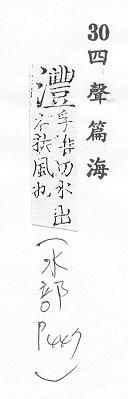 30四聲篇海
灃
孚切水出
右扶風也
(水部P447)